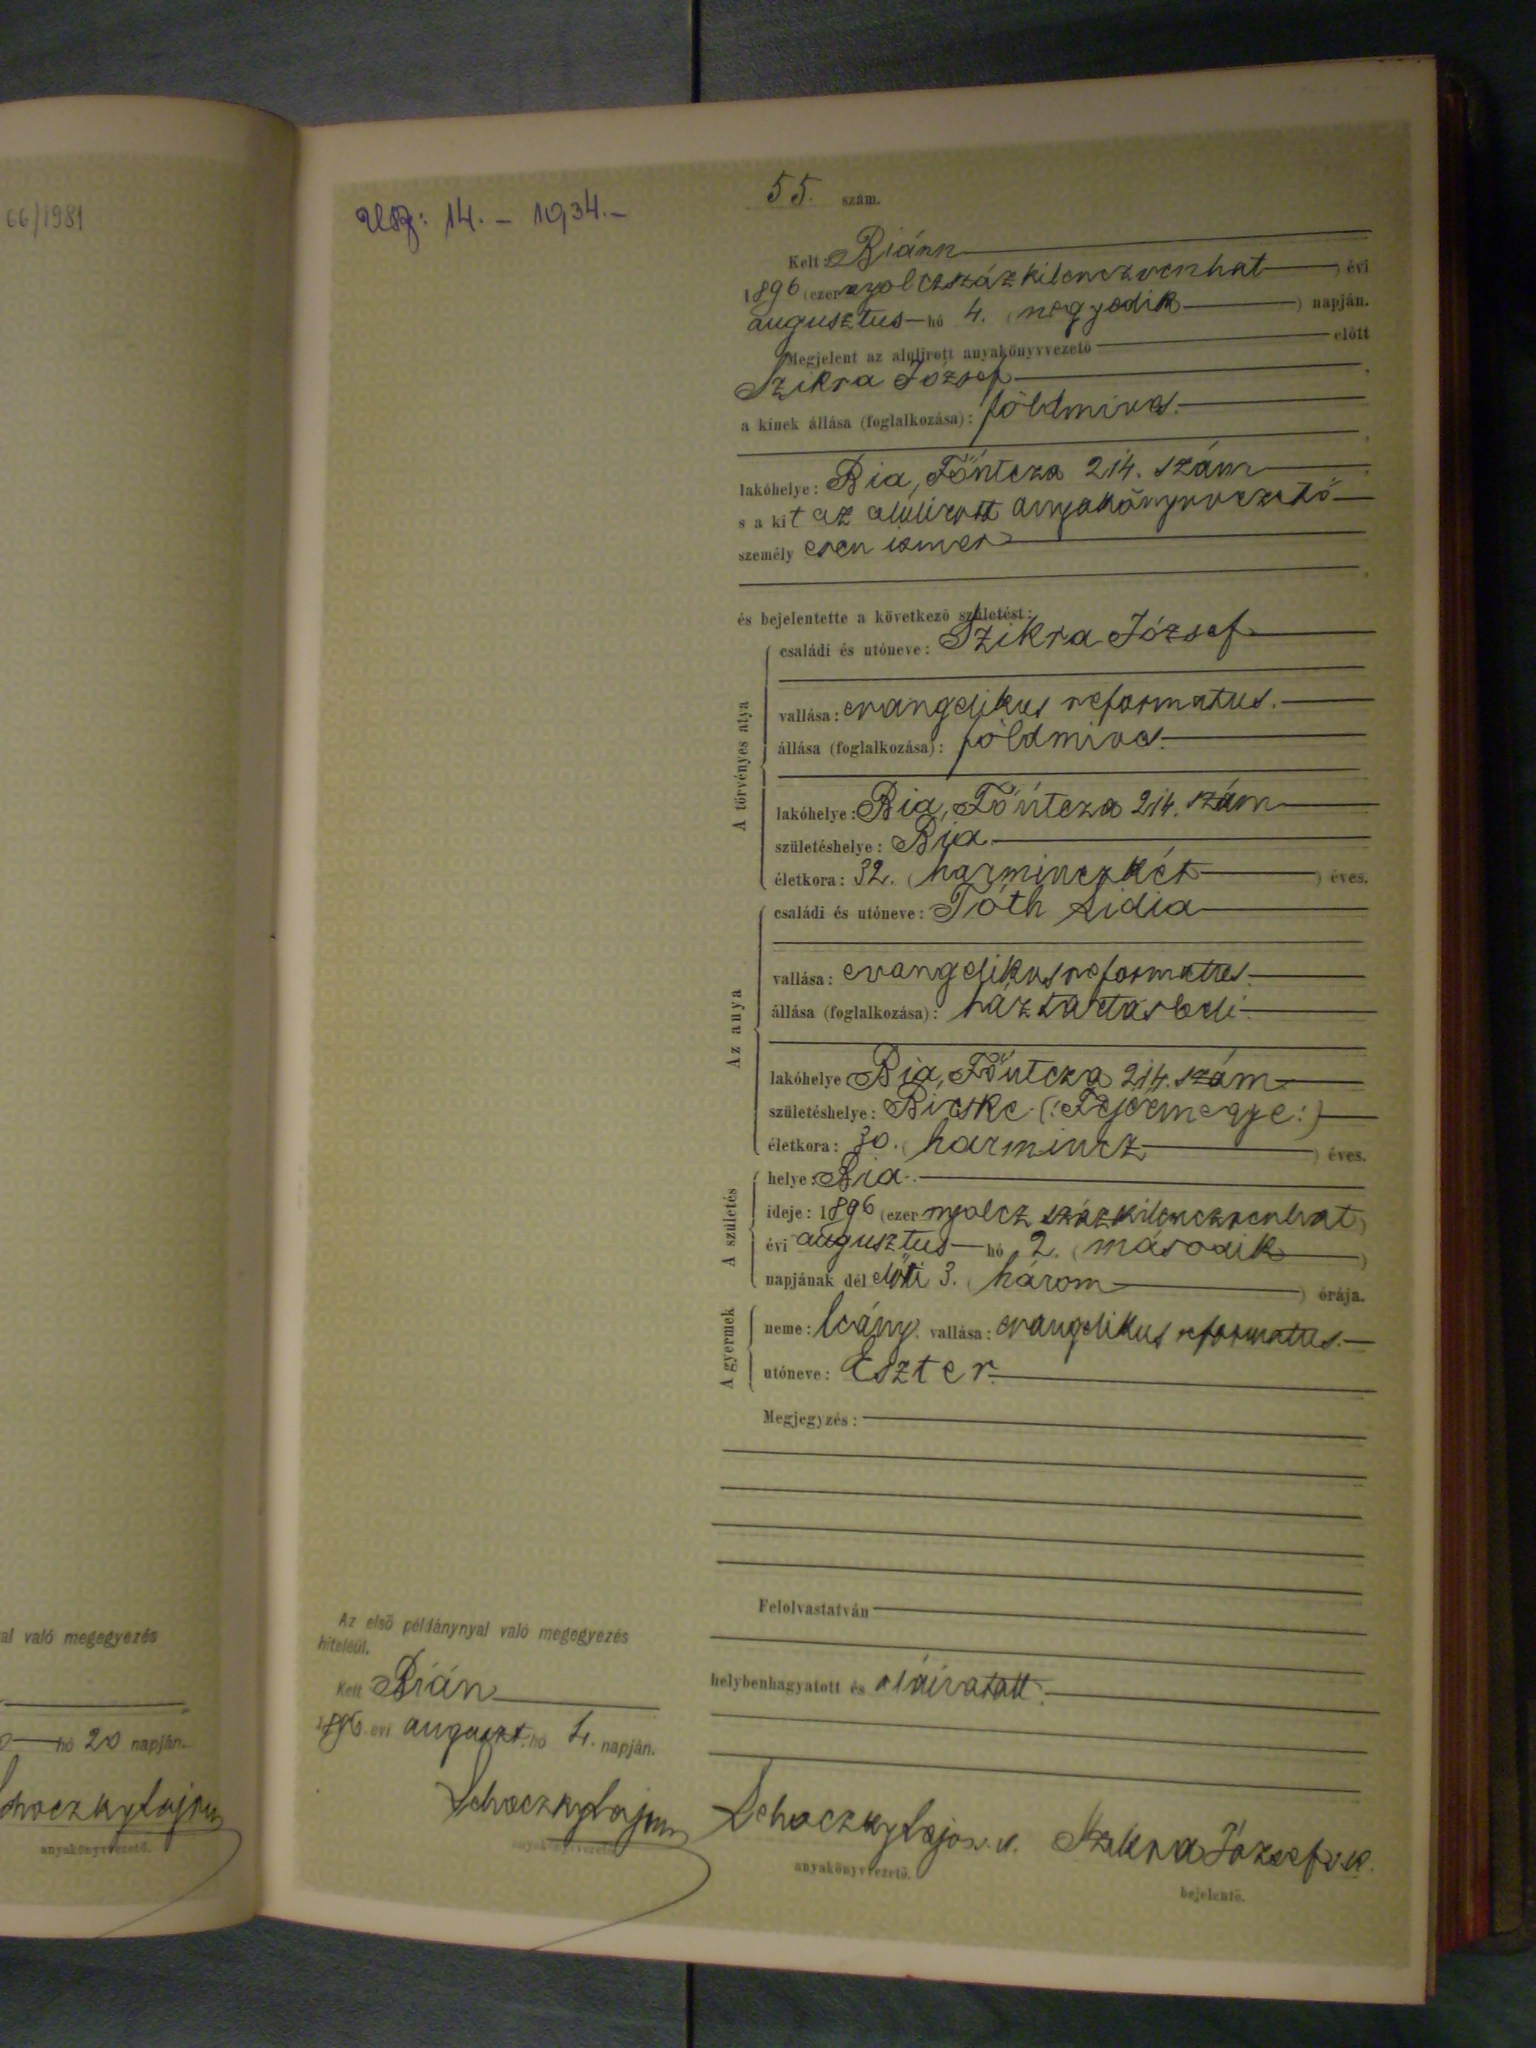 66/1981
14. - 1934. -
55. szám.
Kelt: Bián
1896 (ezer nyolczszázkilenczvenhat) évi
augusztus hó 4. (negyedik) napján.
Megjelent az alulirott anyakönyvvezető előtt
Szikra József,
a kinek állása (foglalkozása): földmives.
lakóhelye: Bia, Főútcza 214. szám
s a kit az alulirott anyakönyvvezető
személyesen ismer,
és bejelentette a következő születést:
A törvényes atya
családi és utóneve: Szikra József
vallása: evangelikus reformatus.
állása (foglalkozása): földmives.
lakóhelye: Bia, Főútcza 214. szám
születéshelye: Bia.
életkora: 32. (harminczkét) éves.
Az anya
családi és utóneve: Tóth Lidia
vallása: evangelikus reformatus.
állása (foglalkozása): háztartásbeli.
lakóhelye: Bia, Főútcza 214. szám.
születéshelye: Bicske (: Fejérmegye :)
életkora: 30. (harmincz) éves.
A születés
helye: Bia.
ideje: 1896 (ezer nyolcz százkilenczvenhat)
évi augusztus hó 2. (második)
napjának dél előtti 3. (három) órája.
A gyermek
neme: leány. vallása: evangelikus reformatus.
utóneve: Eszter.
Megjegyzés:
Felolvastatván
helybenhagyatott és aláiratott.
Schoczky Lajos s.k. Szikra József s.k.
anyakönyvvezető. bejelentő.
Az első példánynyal való megegyezés
hiteléül.
Kelt Bián
1896. évi auguszt. hó 4. napján.
Schoczky Lajos
anyakönyvvezető.
al való megegyezés
hó 20 napján.
Schoczky Lajos
anyakönyvvezető.